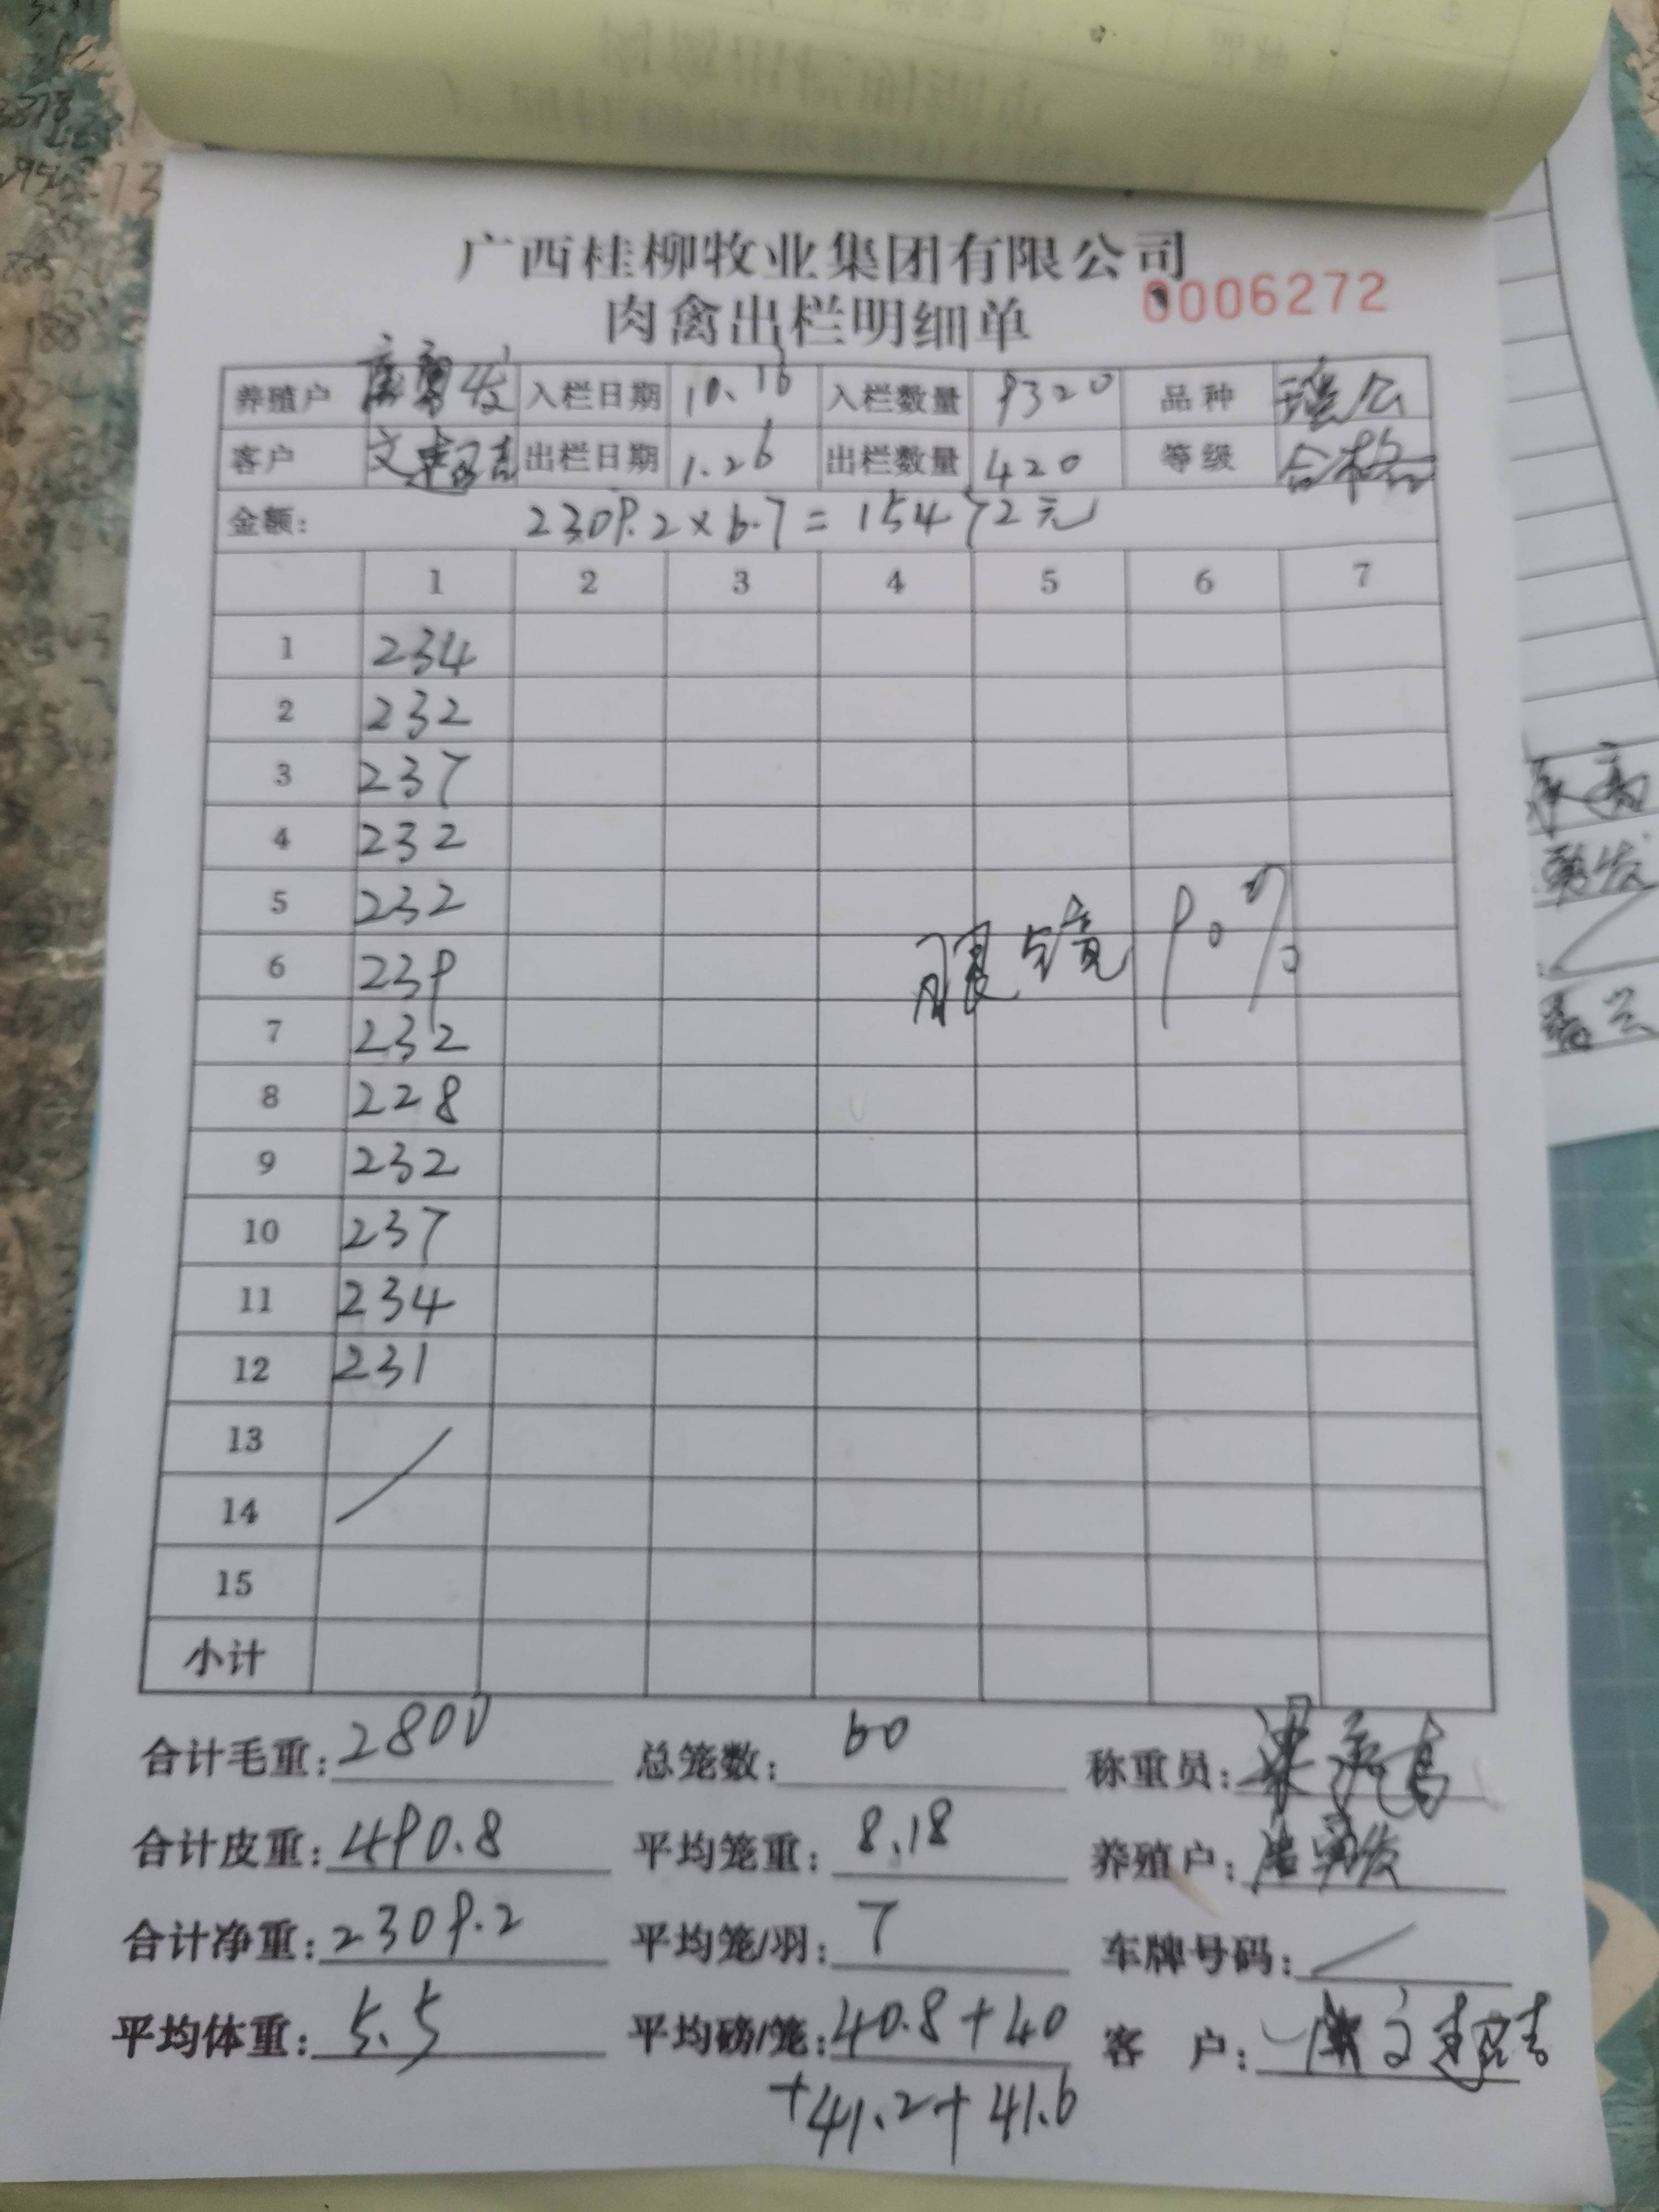 广西桂柳牧业集团有限公司
0006272
肉禽出栏明细单
养殖户 入栏日期 10.16 入栏数量 9320 品种 瑶公
客户 文 出栏日期 1.26 出栏数量 420 等级 合格
金额: 2309.2×6.7=15472元
1 2 3 4 5 6 7
1 234
2 232
3 237
4 232
5 232
6 239
7 232
8 228
9 232
10 237
11 234
12 231
13
14
15
眼镜90%
小计
合计毛重: 2800 总笼数: 60 称重员:
合计皮重: 490.8 平均笼重: 8.18 养殖户:
合计净重: 2309.2 平均笼/羽: 7 车牌号码: /
平均体重: 5.5 平均磅/笼: 40.8+40 客 户:
+41.2+41.6